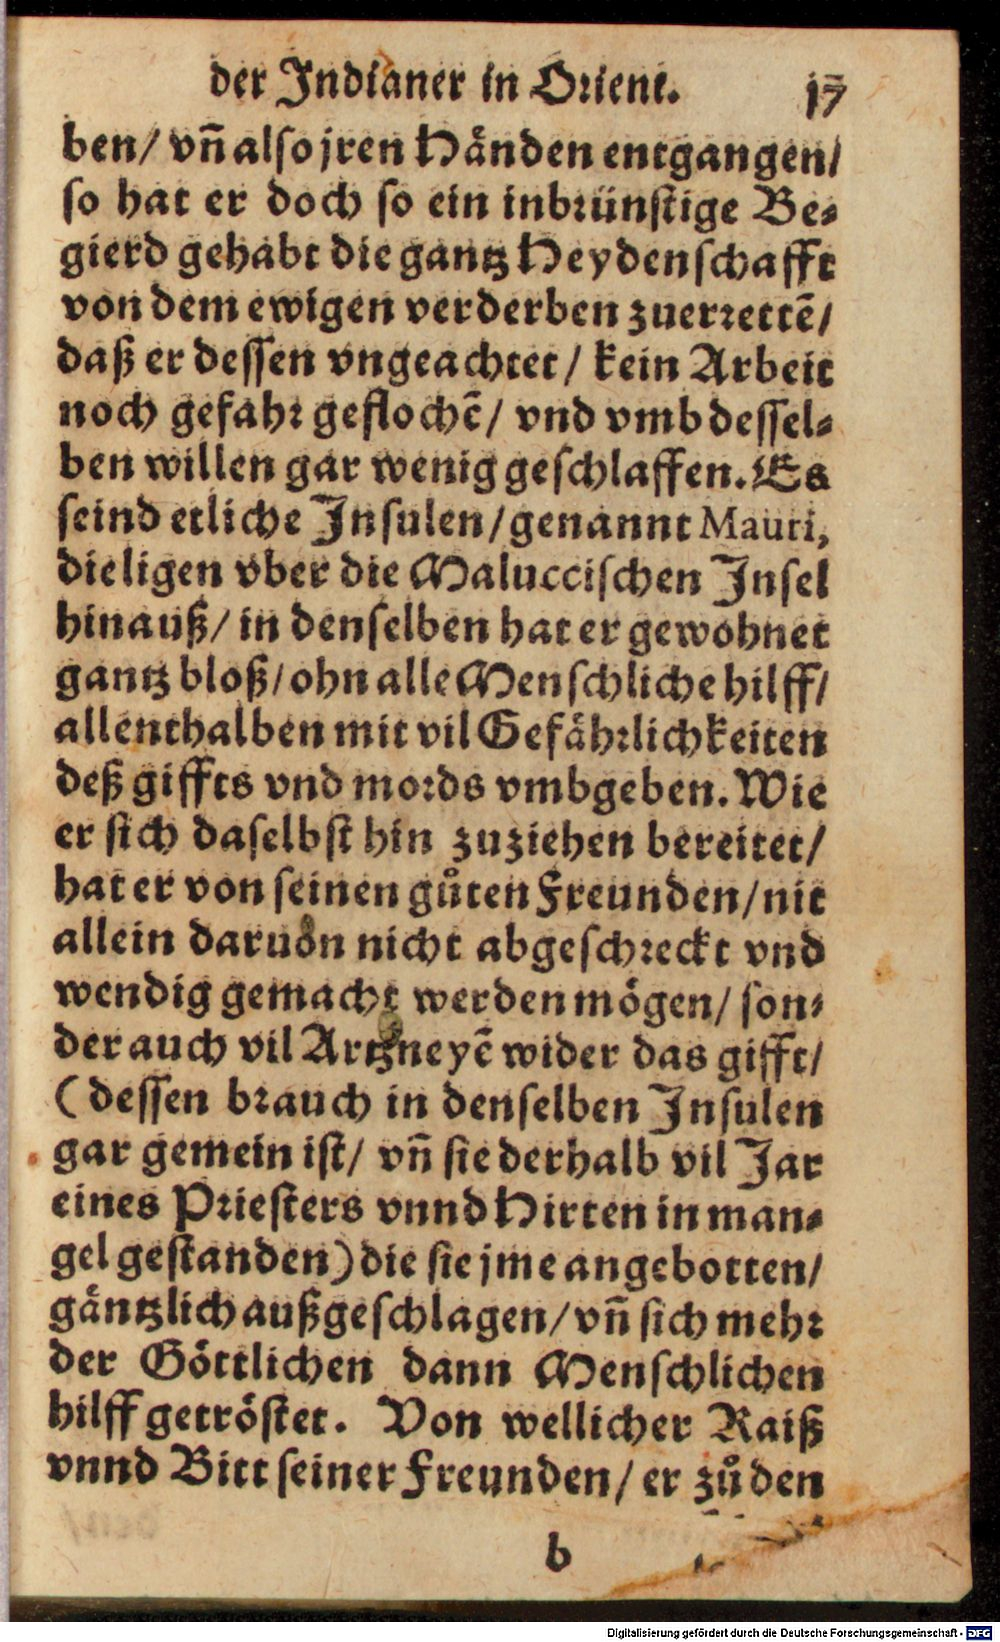 der Indianer in Orient. 17
ben/ vñ also jren Händen entgangen/
so hat er doch so ein inbrünstige Be-
gierd gehabt die gantz Heydenschafft
von dem ewigen verderben zuerrettē/
daß er dessen vngeachtet/ kein Arbeit
noch gefahr geflochē/ vnd vmb dessel-
ben willen gar wenig geschlaffen. Es
seind etliche Insulen/ genannt Mauri,
die ligen vber die Maluccischen Insel
hinauß/ in denselben hat er gewohnet
gantz bloß/ ohn alle Menschliche hilff/
allenthalben mit vil Gefährlichkeiten
deß giffts vnd mords vmbgeben. Wie
er sich daselbst hin zuziehen bereitet/
hat er von seinen gůten Freunden/ nit
allein daruon nicht abgeschreckt vnd
wendig gemacht werden mögen/ son-
der auch vil Artzneyē wider das gifft/
(dessen brauch in denselben Insulen
gar gemein ist/ vñ sie derhalb vil Jar
eines Priesters vnnd Hirten in man-
gel gestanden) die sie jme angebotten/
gäntzlich außgeschlagen/ vñ sich mehr
der Göttlichen dann Menschlichen
hilff getröstet. Von wellicher Raiß
vnnd Bitt seiner Freunden/ er zů den
b
Digitalisierung gefördert durch die Deutsche Forschungsgemeinschaft - DFG